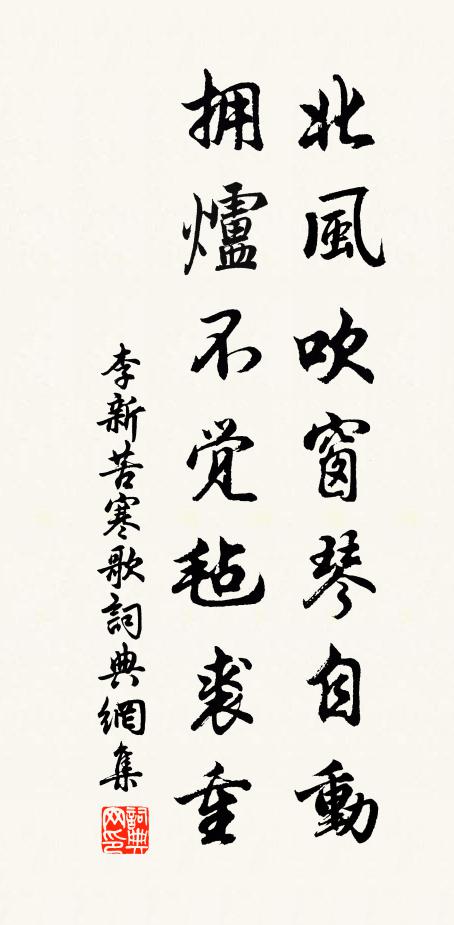 北風吹窗琴自動
拥爐不觉毡裘重
李新苦寒歌詞典網集
詞典网印